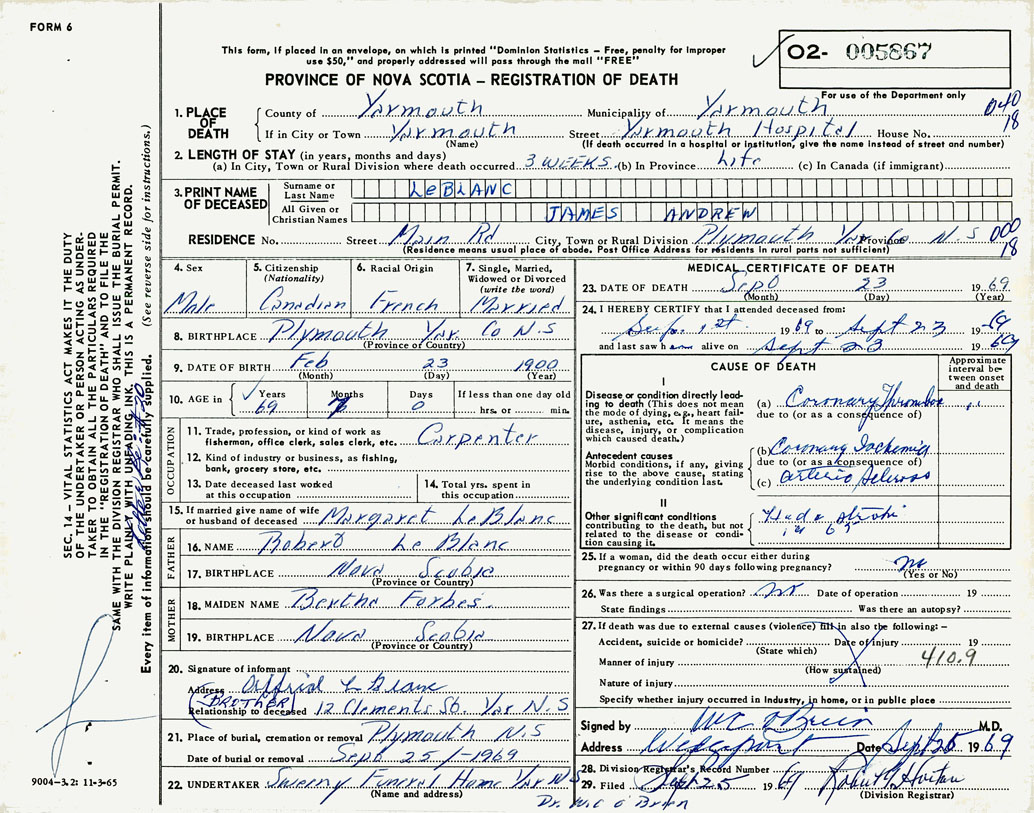 FORM 6
This form, if placed in an envelope, on which is printed "Dominion Statistics – Free, penalty for improper
use $50," and properly addressed will pass through the mail "FREE"
02- 005867
PROVINCE OF NOVA SCOTIA – REGISTRATION OF DEATH
For use of the Department only
040
18
1. PLACE OF DEATH
County of Yarmouth Municipality of Yarmouth
If in City or Town Yarmouth Street Yarmouth Hospital House No.
(Name) (If death occurred in a hospital or institution, give the name instead of street and number)
2. LENGTH OF STAY (in years, months and days)
(a) In City, Town or Rural Division where death occurred 3 WEEKS (b) In Province Life (c) In Canada (if immigrant)
3. PRINT NAME OF DECEASED
Surname or Last Name LeBLANC
All Given or Christian Names JAMES ANDREW
RESIDENCE No. Street Main Rd City, Town or Rural Division Plymouth Yar Co Province N.S 000
(Residence means usual place of abode. Post Office Address for residents in rural parts not sufficient) 18
4. Sex
Male
5. Citizenship
(Nationality)
Canadian
6. Racial Origin
French
7. Single, Married,
Widowed or Divorced
(write the word)
Married
8. BIRTHPLACE Plymouth Yar. Co N.S
(Province or Country)
9. DATE OF BIRTH Feb 23 1900
(Month) (Day) (Year)
10. AGE in Years 69 Months Days 0 If less than one day old
hrs. or min.
OCCUPATION
11. Trade, profession, or kind of work as
fisherman, office clerk, sales clerk, etc. Carpenter
12. Kind of industry or business, as fishing,
bank, grocery store, etc.
13. Date deceased last worked
at this occupation
14. Total yrs. spent in
this occupation
15. If married give name of wife
or husband of deceased Margaret LeBlanc
FATHER
16. NAME Robert Le Blanc
17. BIRTHPLACE Nova Scotia
(Province or Country)
MOTHER
18. MAIDEN NAME Bertha Forbes
19. BIRTHPLACE Nova Scotia
(Province or Country)
20. Signature of informant
Address Alfrid L Blanc
(BROTHER)
Relationship to deceased 12 Clements St. Yar N.S
21. Place of burial, cremation or removal Plymouth N.S
Date of burial or removal Sept 25/-1969
22. UNDERTAKER Sweeny Funeral Home Yar N S
(Name and address)
Dr. W.C O'Brien
MEDICAL CERTIFICATE OF DEATH
23. DATE OF DEATH Sept 23 1969
(Month) (Day) (Year)
24. I HEREBY CERTIFY that I attended deceased from:
Sept. 1st. 1969 to Sept 23 1969
and last saw him alive on Sept 23 1969
CAUSE OF DEATH
Approximate
interval be-
tween onset
and death
I
Disease or condition directly lead-
ing to death (This does not mean
the mode of dying, e.g., heart fail-
ure, asthenia, etc. It means the
disease, injury, or complication
which caused death.)
(a) Coronary Thrombosis
due to (or as a consequence of)
Antecedent causes
Morbid conditions, if any, giving
rise to the above cause, stating
the underlying condition last.
(b) Coronary Ischemia
due to (or as a consequence of)
(c) Arterio Scleross
II
Other significant conditions
contributing to the death, but not
related to the disease or condi-
tion causing it.
Had a stroke
in 67
25. If a woman, did the death occur either during
pregnancy or within 90 days following pregnancy? no
(Yes or No)
26. Was there a surgical operation? no Date of operation 19
State findings Was there an autopsy?
27. If death was due to external causes (violence) fill in also the following:–
Accident, suicide or homicide? Date of injury 19
(State which)
Manner of injury 410.9
(How sustained)
Nature of injury
Specify whether injury occurred in industry, in home, or in public place
Signed by W C O'Brien M.D.
Address Wedgeport Date Sept 25 1969
28. Division Registrar's Record Number
29. Filed Sept 25 1969
(Division Registrar)
SEC. 14 – VITAL STATISTICS ACT MAKES IT THE DUTY
OF THE UNDERTAKER OR PERSON ACTING AS UNDER-
TAKER TO OBTAIN ALL THE PARTICULARS REQUIRED
IN THE "REGISTRATION OF DEATH" AND TO FILE THE
SAME WITH THE DIVISION REGISTRAR WHO SHALL ISSUE THE BURIAL PERMIT.
WRITE PLAINLY WITH UNFADING INK. THIS IS A PERMANENT RECORD.
Every item of information should be carefully supplied. (See reverse side for instructions.)
9004-3.2: 11-3-65